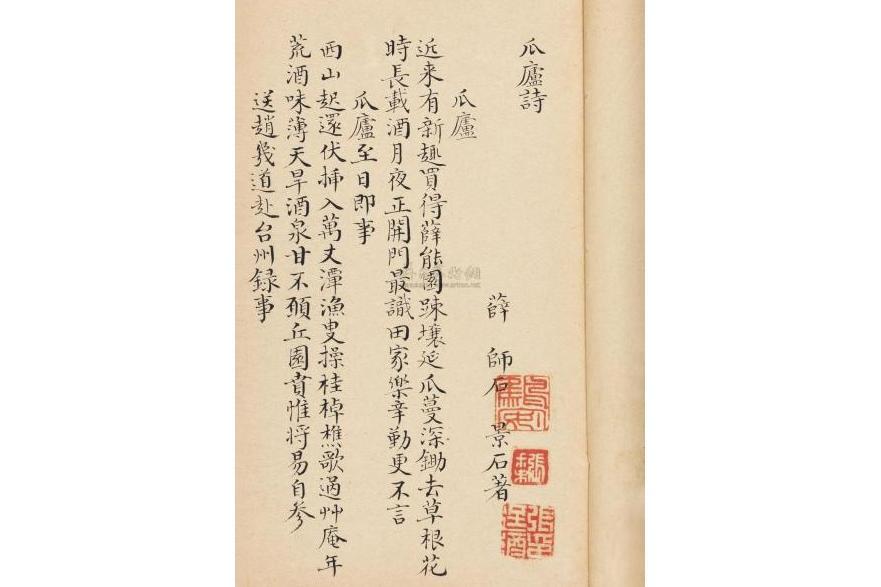 瓜廬詩
薛 師石 景石著
瓜廬
近来有新趣買得薛能園踈壤延瓜蔓深鋤去草根花
時長載酒月夜正開門最識田家樂辛勤更不言
瓜廬至日即事
西山起還伏挿入萬丈潭漁叟操桂棹樵歌過艸庵年
荒酒味薄天旱酒泉甘不願丘園賁惟将易自参
送趙幾道赴台州録事